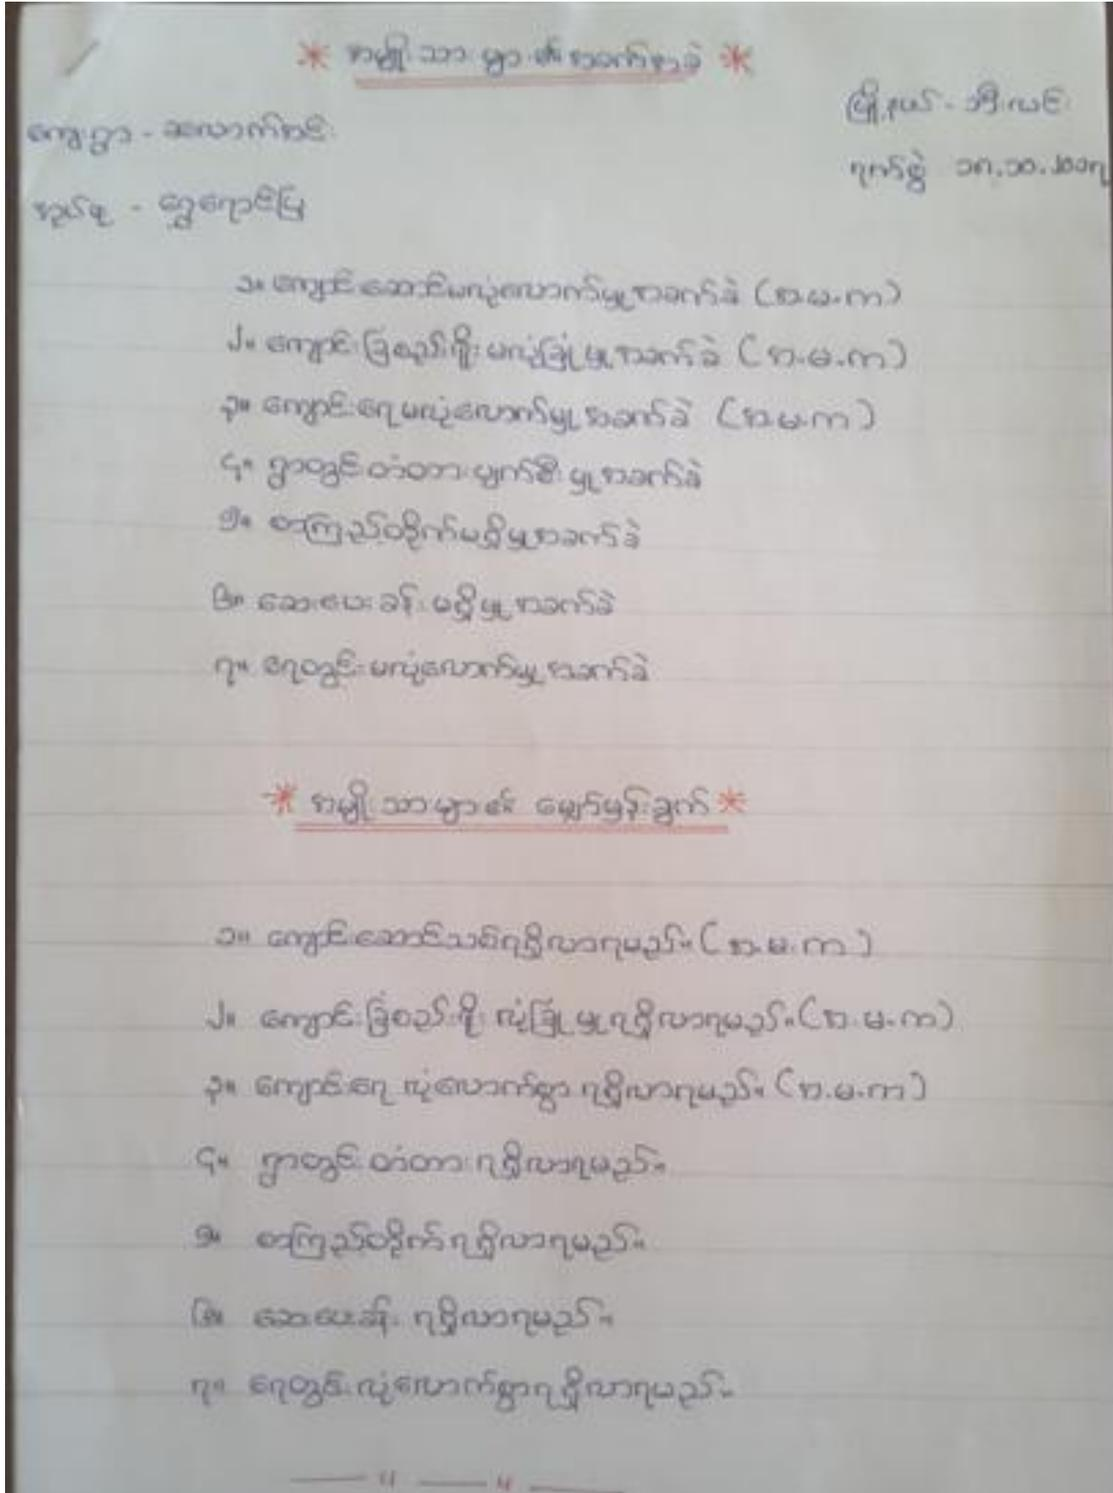 * အမျိုးသားများ၏ အခက်အခဲ *
မြို့နယ် - ဘီးလင်း
ကျေးရွာ - ဆလောက်အင်း
ရက်စွဲ ၁၈.၁၀.၂၀၁၇
အုပ်စု - ရွှေရောင်ပြ
၁။ ကျောင်းဆောင်မလုံလောက်မှု အခက်ခဲ (အ.မ.က)
၂။ ကျောင်းခြံစည်းရိုး မလုံခြုံမှု အခက်ခဲ (အ.မ.က)
၃။ ကျောင်းရေမလုံလောက်မှု အခက်ခဲ (အ.မ.က)
၄။ ရွာတွင်း တံတားပျက်စီးမှု အခက်ခဲ
၅။ စာကြည့်တိုက်မရှိမှု အခက်ခဲ
၆။ ဆေးပေးခန်း မရှိမှု အခက်ခဲ
၇။ ရေတွင်းမလုံလောက်မှု အခက်ခဲ
* အမျိုးသားများ၏ မျှော်မှန်းချက် *
၁။ ကျောင်းဆောင်သစ်ရရှိလာရမည်။ (အ.မ.က)
၂။ ကျောင်းခြံစည်းရိုး လုံခြုံမှုရရှိလာရမည်။ (အ.မ.က)
၃။ ကျောင်းရေ လုံလောက်စွာ ရရှိလာရမည်။ (အ.မ.က)
၄။ ရွာတွင်း တံတား ရရှိလာရမည်။
၅။ စာကြည့်တိုက် ရရှိလာရမည်။
၆။ ဆေးပေးခန်း ရရှိလာရမည်။
၇။ ရေတွင်းလုံလောက်စွာရရှိလာရမည်။